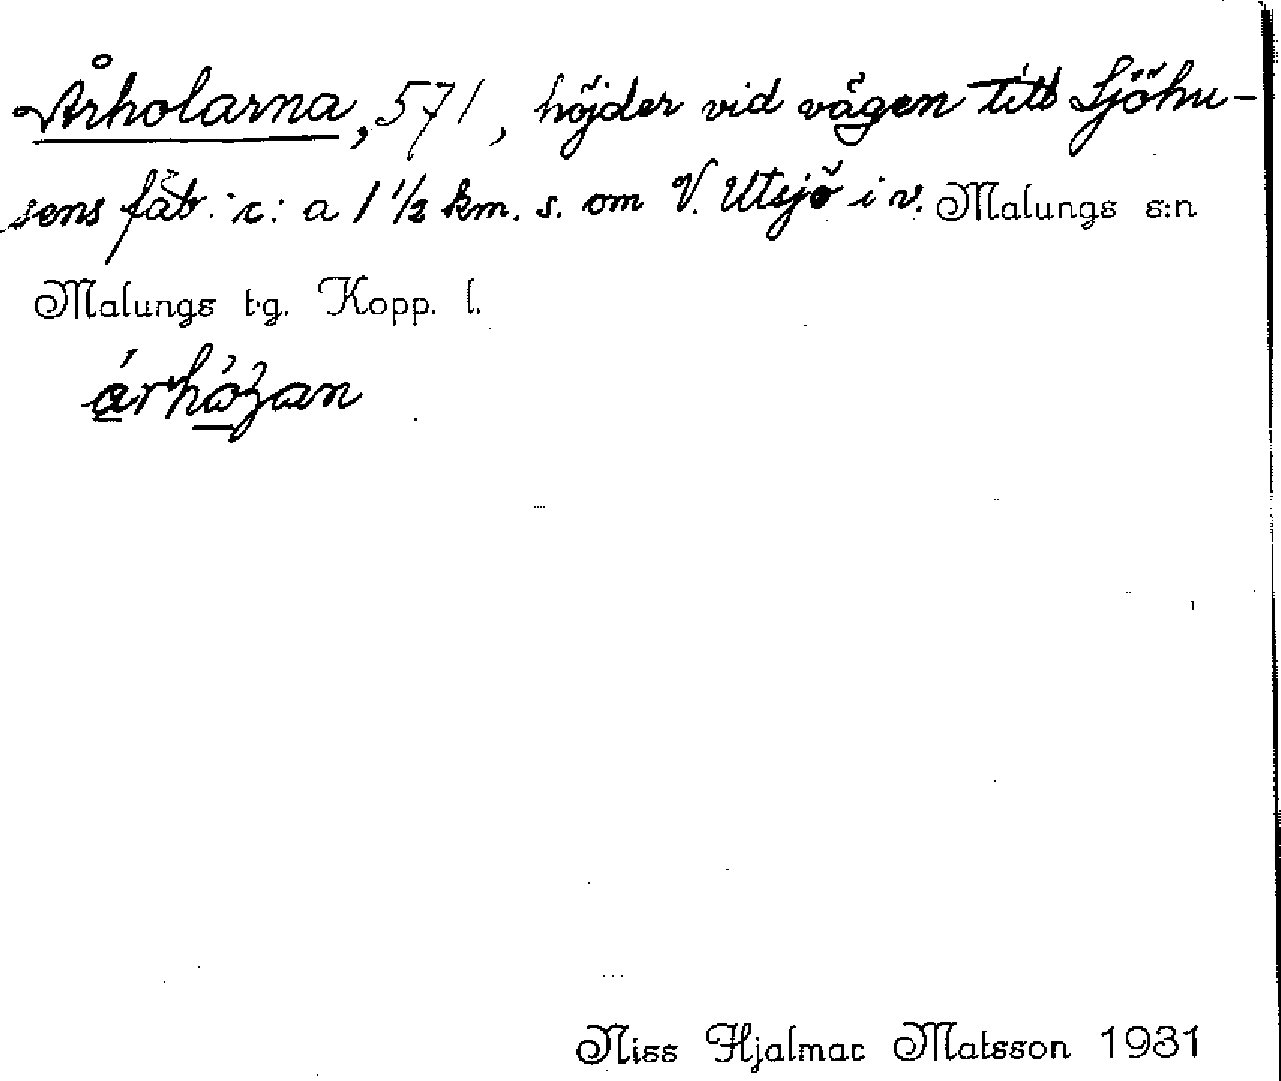 Årholarna, 571, höjder vid vägen till Sjöhu-
sens fäb. c:a 1 ½ km. s. om V. Utsjö i v. Malungs s:n
Malungs t.g. Kopp. l.
Niss Hjalmar Matsson 1931